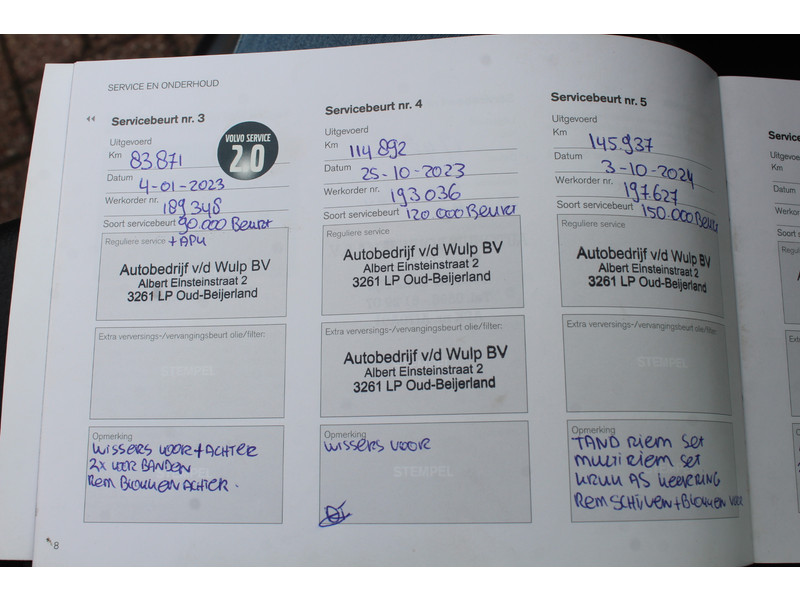 SERVICE EN ONDERHOUD
Servicebeurt nr. 3
Uitgevoerd
Km 83871
Datum 4-01-2023
Werkorder nr. 189348
Soort servicebeurt 90.000 Beurt
Reguliere service + APU
VOLVO SERVICE
2.0
Autobedrijf v/d Wulp BV
Albert Einsteinstraat 2
3261 LP Oud-Beijerland
Extra verversings-/vervangingsbeurt olie/filter:
STEMPEL
Opmerking
WISSERS VOOR + ACHTER
2x VOOR BANDEN
REM BLOKKEN ACHTER.
8
Servicebeurt nr. 4
Uitgevoerd
Km 114892
Datum 25-10-2023
Werkorder nr. 193036
Soort servicebeurt 120 000 Beurt
Reguliere service
Autobedrijf v/d Wulp BV
Albert Einsteinstraat 2
3261 LP Oud-Beijerland
Extra verversings-/vervangingsbeurt olie/filter:
Autobedrijf v/d Wulp BV
Albert Einsteinstraat 2
3261 LP Oud-Beijerland
Opmerking
WISSERS VOOR
STEMPEL
Servicebeurt nr. 5
Uitgevoerd
Km 145.937
Datum 3-10-2024
Werkorder nr. 197.627
Soort servicebeurt 150.000 Beurt
Reguliere service
Autobedrijf v/d Wulp BV
Albert Einsteinstraat 2
3261 LP Oud-Beijerland
Extra verversings-/vervangingsbeurt olie/filter:
STEMPEL
Opmerking
TAND RIEM SET
MULTI RIEM SET
KRUK AS KEERRING
REM SCHIJVEN + BLOKKEN VOOR
Service
Uitgevoe
Km
Datum
Werkor
Soort s